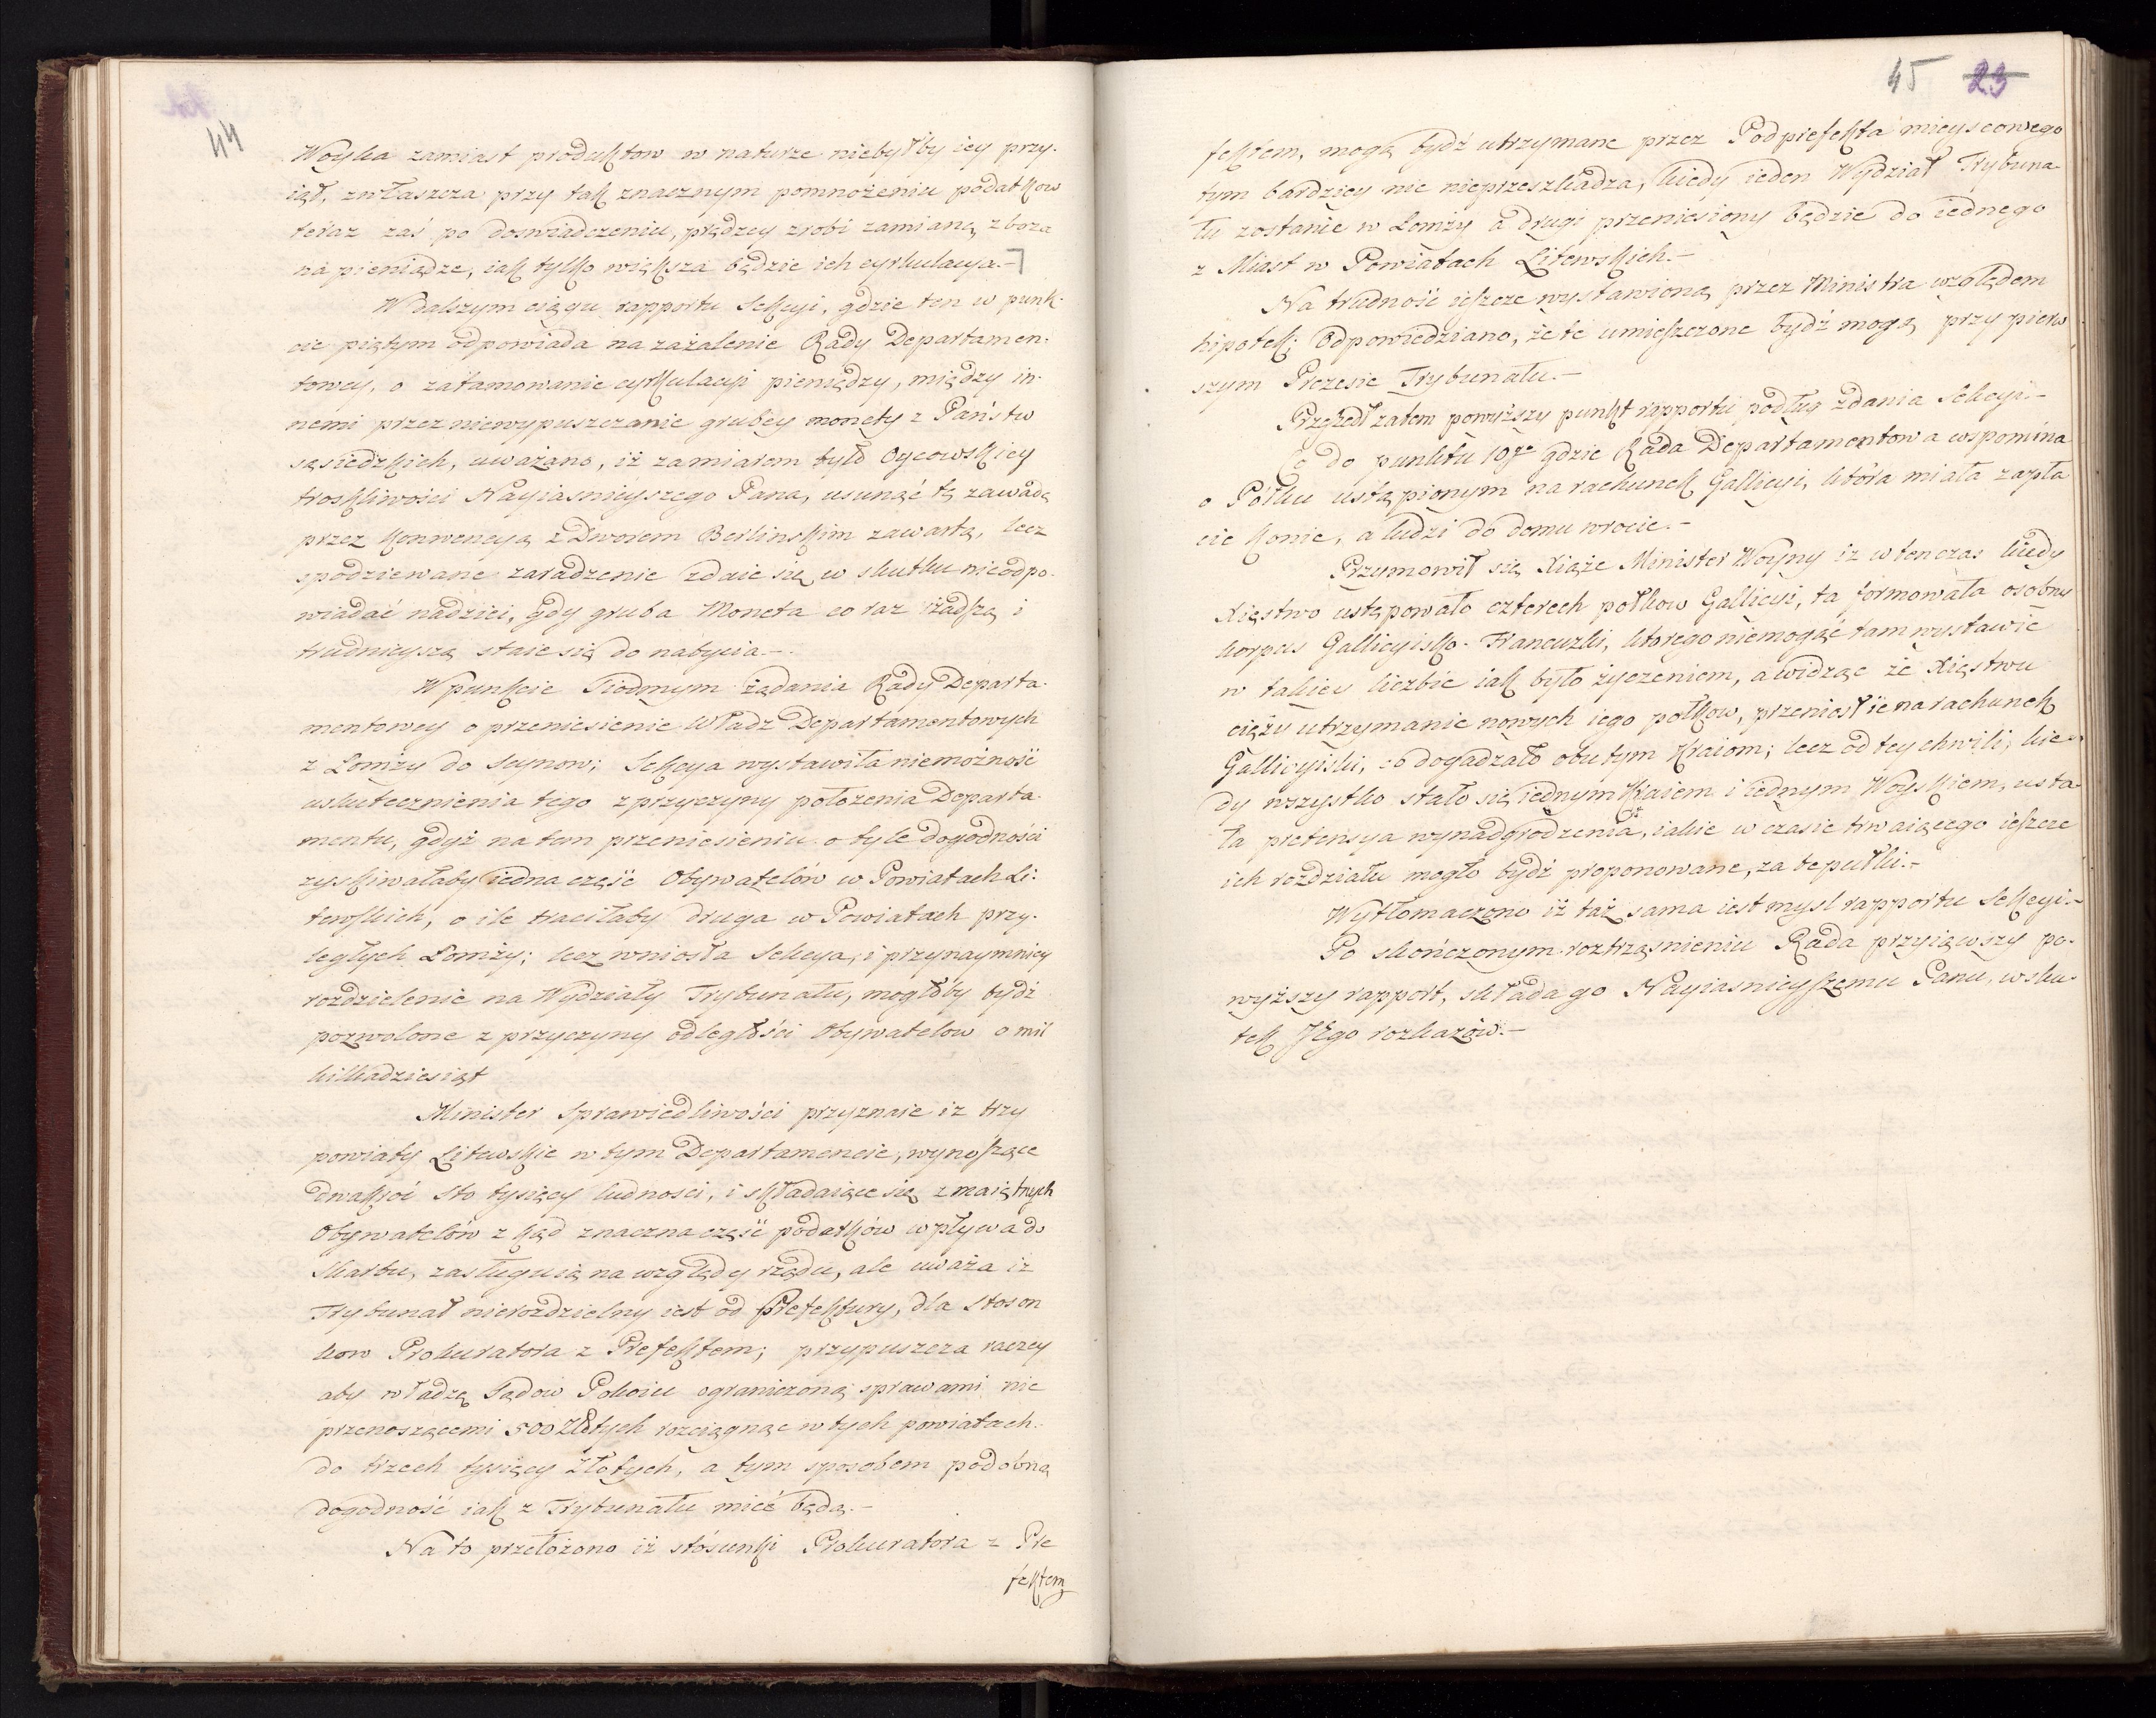 44
Woyska zamiast produktow w naturze niebyłby iey przy-
iął, zwłaszcza przy tak znacznym pomnożeniu podatkow
teraz zaś po doswiadczeniu, prędzey zrobi zamianę zboza
na pieniądze, iak tylko większa będzie ich cyrkulacya.—
W dalszym ciągu rapportu Sekcyi, gdzie ten w punk-
cie piątym odpowiada na zażalenie Rady Departamen-
towey, o zatamowanie cyrkulacyi pieniędzy, między in-
nemi przez niewypuszczanie grubey monety z Państw
sąsiedzkich, uważano, iż zamiarem było Oycowskiey
troskliwości Nayiasnieyszego Pana, usunąć tę zawadę
przez konwencyą z Dworem Berlinskim zawartą, lecz
spodziewane zaradzenie zdaie się w skutku nieodpo-
wiadać nadziei, gdy gruba Moneta co raz rzadszą i
trudnieyszą staie się do nabycia.—
W punkcie Siodmym żądania Rady Departa-
mentowey o przeniesienie Władz Departamentowych
z Lomży do Seynow; Sekcya wystawiła niemożność
uskutecznienia tego z przyczyny położenia Departa-
mentu, gdyż na tem przeniesieniu o tyle dogodności
zyskiwałaby iedna część Obywatelów w Powiatach Li-
tewskich, o ile traciłaby druga w Powiatach przy-
ległych Lomży; lecz wniosła Sekcya, i przynaymniey
rozdzielenie na Wydziały Trybunału, mogłoby bydź
pozwolone z przyczyny odległości Obywatelow o mil
kilkadziesiąt
Minister Sprawiedliwości przyznaie iz trzy
powiaty Litewskie w tym Departamencie, wynoszące
dwakroć sto tysięcy ludnosci, i składaiące się z maiętnych
Obywatelów z kąd znaczna część podatków wpływa do
Skarbu, zasługuią na względy rządu, ale uważa iż
Trybunał nierozdzielny iest od Prefektury, dla stosun
kow Prokuratora z Prefektem; przypuszcza raczey
aby władzę Sądow Pokoiu ograniczoną sprawami nie
przenoszącemi 500 Złotych rozciągnąc w tych powiatach
do trzech tysięcy Złotych, a tym sposobem podobną
dogodność iak z Trybunału mieć będą.—
Na to przełożono iż stósunki Prokuratora z Pre
fektem
45 23
fektem, mogą bydź utrzymane przez Podprefekta mieyscowego
tym bardziey nic nieprzeszkadza, kiedy ieden Wydział Trybuna-
łu zostanie w Lomży a drugi przeniesiony będzie do iednego
z Miast w Powiatach Litewskich.—
Na trudność ieszcze wystawioną przez Ministra względem
hipotek; Odpowiedziano, że te umieszczone bydź mogą przy pierw
szym Prezesie Trybunału.—
Przeszedł zatem powyższy punkt rapportu podług zdania Sekcyi.—
Co do punktu 10go gdzie Rada Departamentowa wspomina
o Pólku ustąpionym na rachunek Gallicyi, która miała zapła
cic konie, a ludzi do domu wrocic.—
Przymowił się Xiąże Minister Woyny iz w tenczas kiedy
Xięstwo ustępowało czterech połkow Gallicyi, ta formowała osobny
korpus Gallicyisko-Francuzki, ktorego niemogąć tam wystawić
w takiey liczbie iak było życzeniem, a widząc że Xięstwu
cięży utrzymanie nowych iego połkow, przeniosł ie na rachunek
Gallicyiski, co dogadzało obu tym Kraiom; lecz od tey chwili, kie-
dy wszystko stało się iednym Kraiem i iednym Woyskiem, usta-
ła pretensya wynadgrodzenia, iakie w czasie trwaiącego ieszcze
ich rozdziału mogło bydź proponowane, za te pułki.—
Wytłomaczono iż taż sama iest mysl rapportu Sekcyi.—
Po skończonym roztrząsnieniu Rada przyiąwszy po-
wyższy rapport, składa go Nayiasnieyszemu Panu, w sku-
tek Jego rozkazów.—